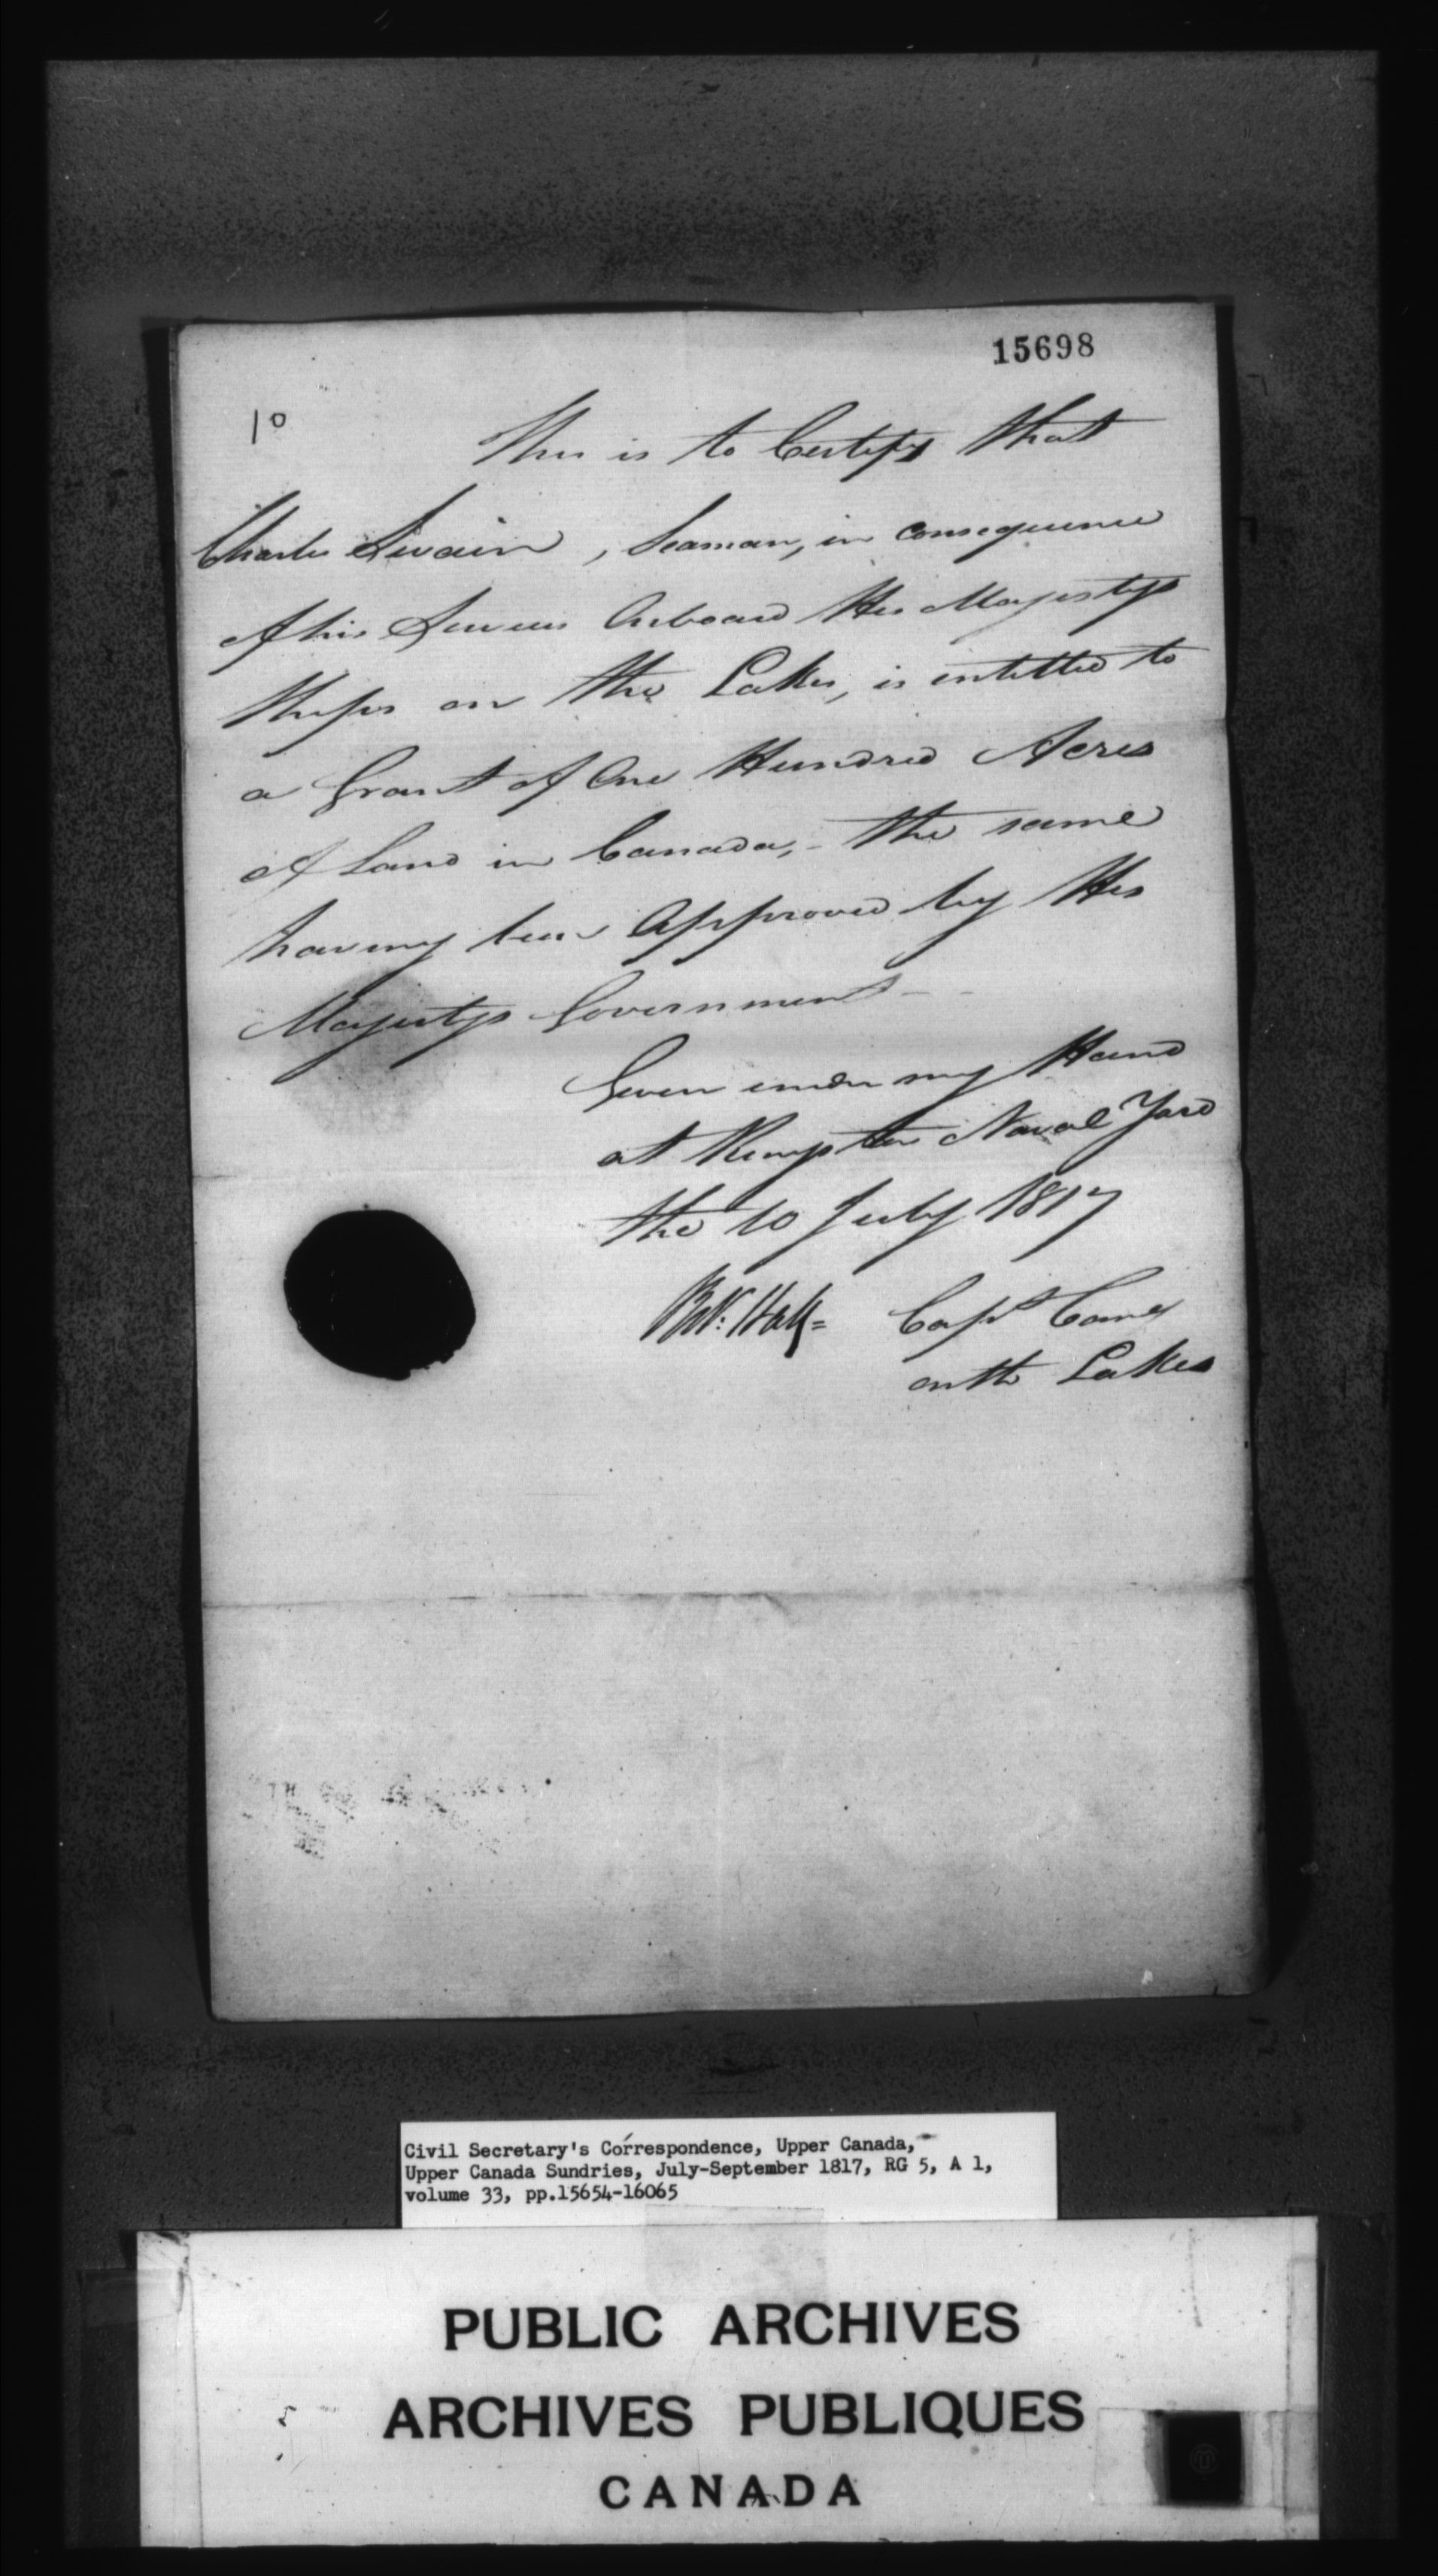 15698
10
This is to Certify that
Charles Swain, Seaman, in consequence
of his Services Onboard His Majestys
Ships on the Lakes, is entitled to
a Grant of One Hundred Acres
of Land in Canada, - the same
having been Approved by His
Majestys Government - -
Given under my Hand
at Kingston Naval Yard
the 10 July 1817
Robt: Hall= Capt Comg
on the Lakes
Civil Secretary's Correspondence, Upper Canada,
Upper Canada Sundries, July-September 1817, RG 5, A 1,
volume 33, pp.15654-16065
PUBLIC ARCHIVES
ARCHIVES PUBLIQUES
CANADA